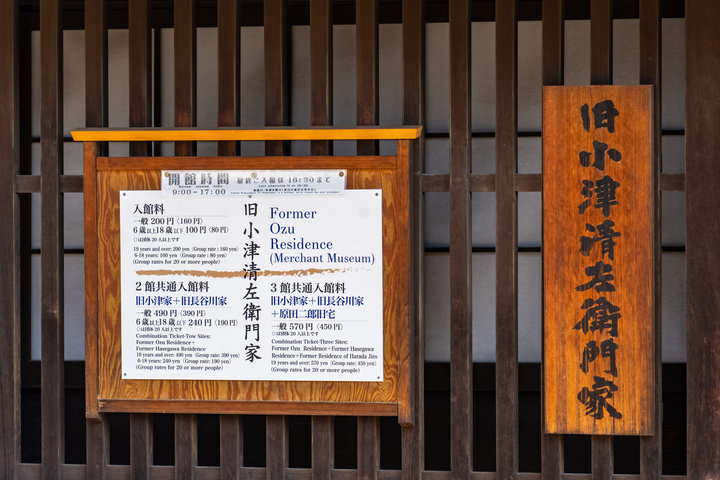 開館時間
最終ご入館は16:30まで
9:00-17:00
Last admission is at 16:30
入館料
一般 200 円〈160 円〉
6 歳以上18 歳以下 100 円〈80 円〉
◇は団体 20 人以上です
19 years and over: 200 yen (Group rate : 160 yen)
6-18 years: 100 yen (Group rate : 80 yen)
(Group rates for 20 or more people)
旧小津清左衛門家
Former
Ozu
Residence
(Merchant Museum)
2 館共通入館料
旧小津家＋旧長谷川家
一般 490 円〈390 円〉
6 歳以上18 歳以下 240 円〈190 円〉
◇は団体 20 人以上です
Combination Ticket-Tow Sites:
Former Ozu Residence＋
Former Hasegawa Residence
19 years and over: 490 yen (Group rate: 390 yen)
6-18 years: 240 yen (Group rate: 190 yen)
(Group rates for 20 or more people)
3 館共通入館料
旧小津家＋旧長谷川家
＋原田二郎旧宅
一般 570 円〈450 円〉
◇は団体 20 人以上です
Combination Ticket-Three Sites:
Former Ozu Residence＋Former Hasegawa
Residence＋Former Residence of Harada Jiro
19 years and over: 570 yen (Group rate; 450 yen)
(Group rates for 20 or more people)
旧小津清左衛門家